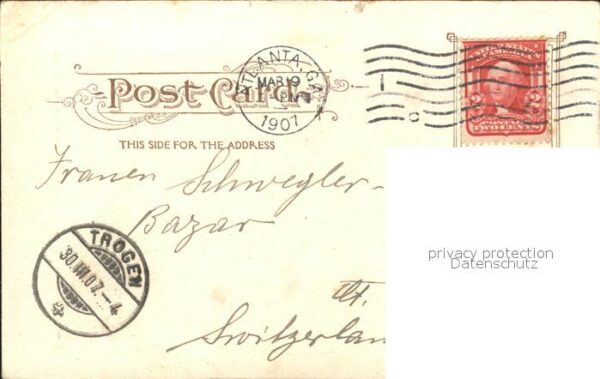 ATLANTA, GA.
MAR 19
1907
POSTAGE
2 2
TWO CENTS
Post Card.
THIS SIDE FOR THE ADDRESS
Frauen Schwegler-
Bazar
TROGEN
30.III.07.-4
privacy protection
Datenschutz
Ct.
Switzerlan